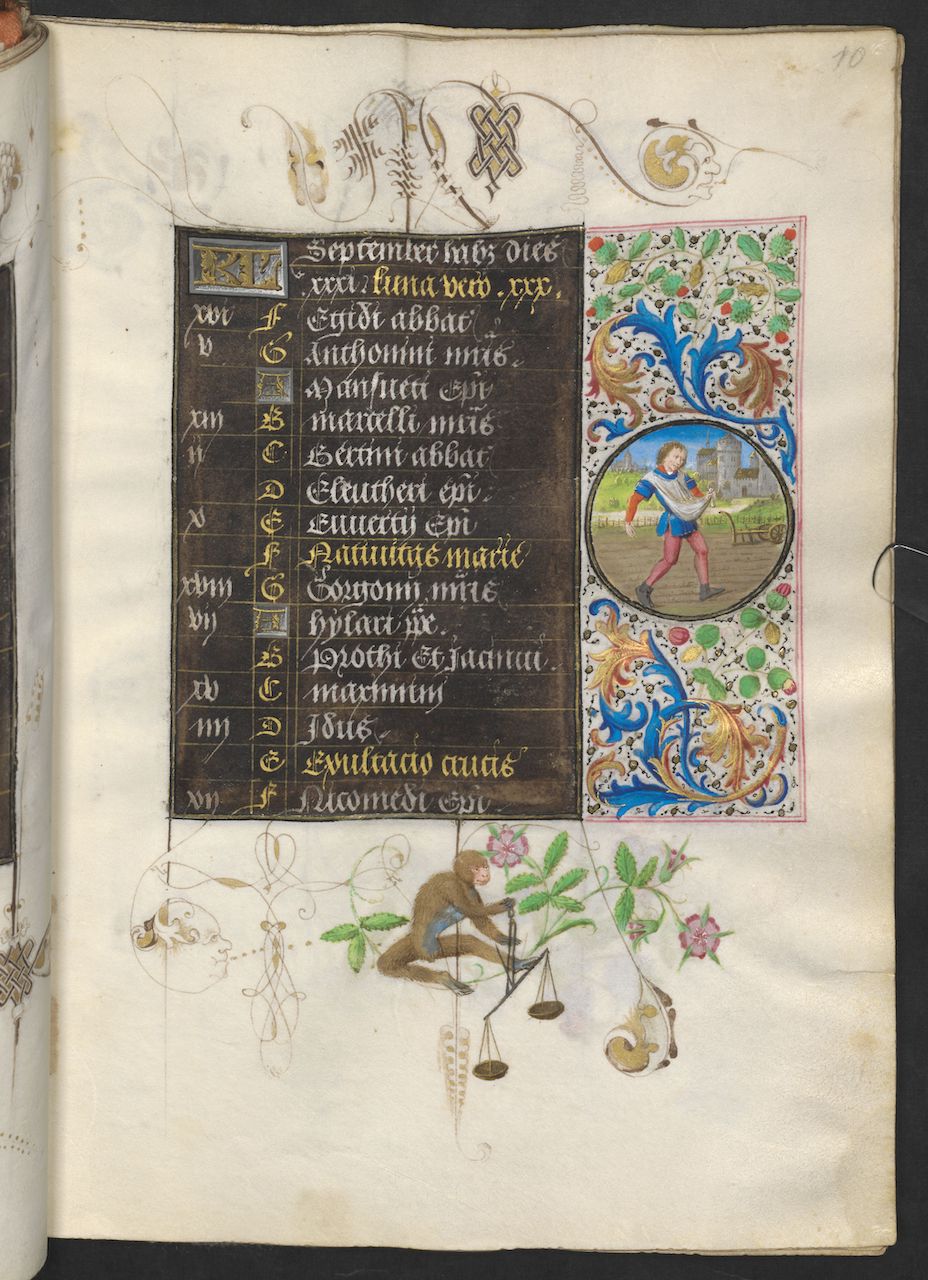 10
KL September habz dies
.xxxi. luna vero .xxx.
xvi F Egidi abbat
v G Anthonini mris
A Mansueti Epi
xiii B marcelli mris
ii C Bertini abbat
D Eleutheri epi
x E Euuertij Epi
F Natiuitas marie
xviii G Gorgonij mris
vij A hylari pp.
B Prothi Et Jacincti.
xv C maximini
iiij D Jdus
E Exultacio crucis
xij F Nicomedi Epi